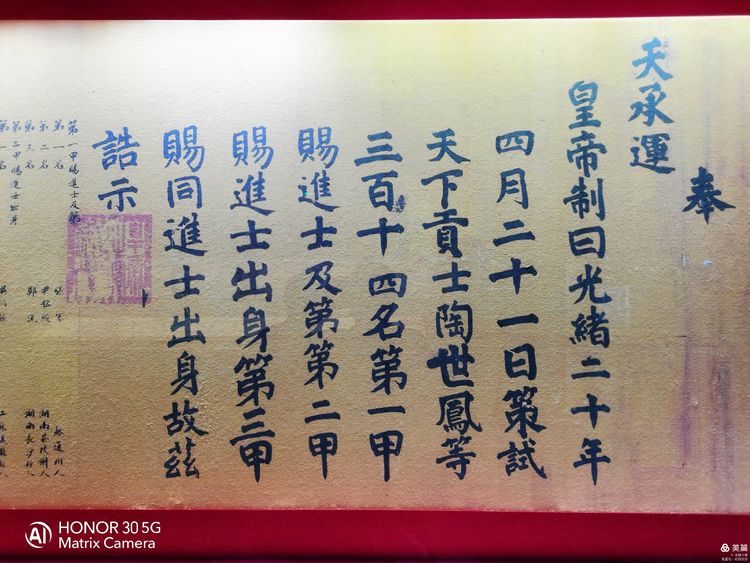 奉
天承運
皇帝制曰光緒二十年
四月二十一日策試
天下貢士陶世鳳等
三百十四名第一甲
賜進士及第第二甲
賜進士出身第三甲
賜同進士出身故茲
誥示
第一甲賜進士及第
第一名
第二名 尹銘綬 湖南茶陵州人
第三名 鄭沅 湖南長沙縣人
第二甲賜進士出身
第一名
HONOR 30 5G
Matrix Camera
AI
美篇